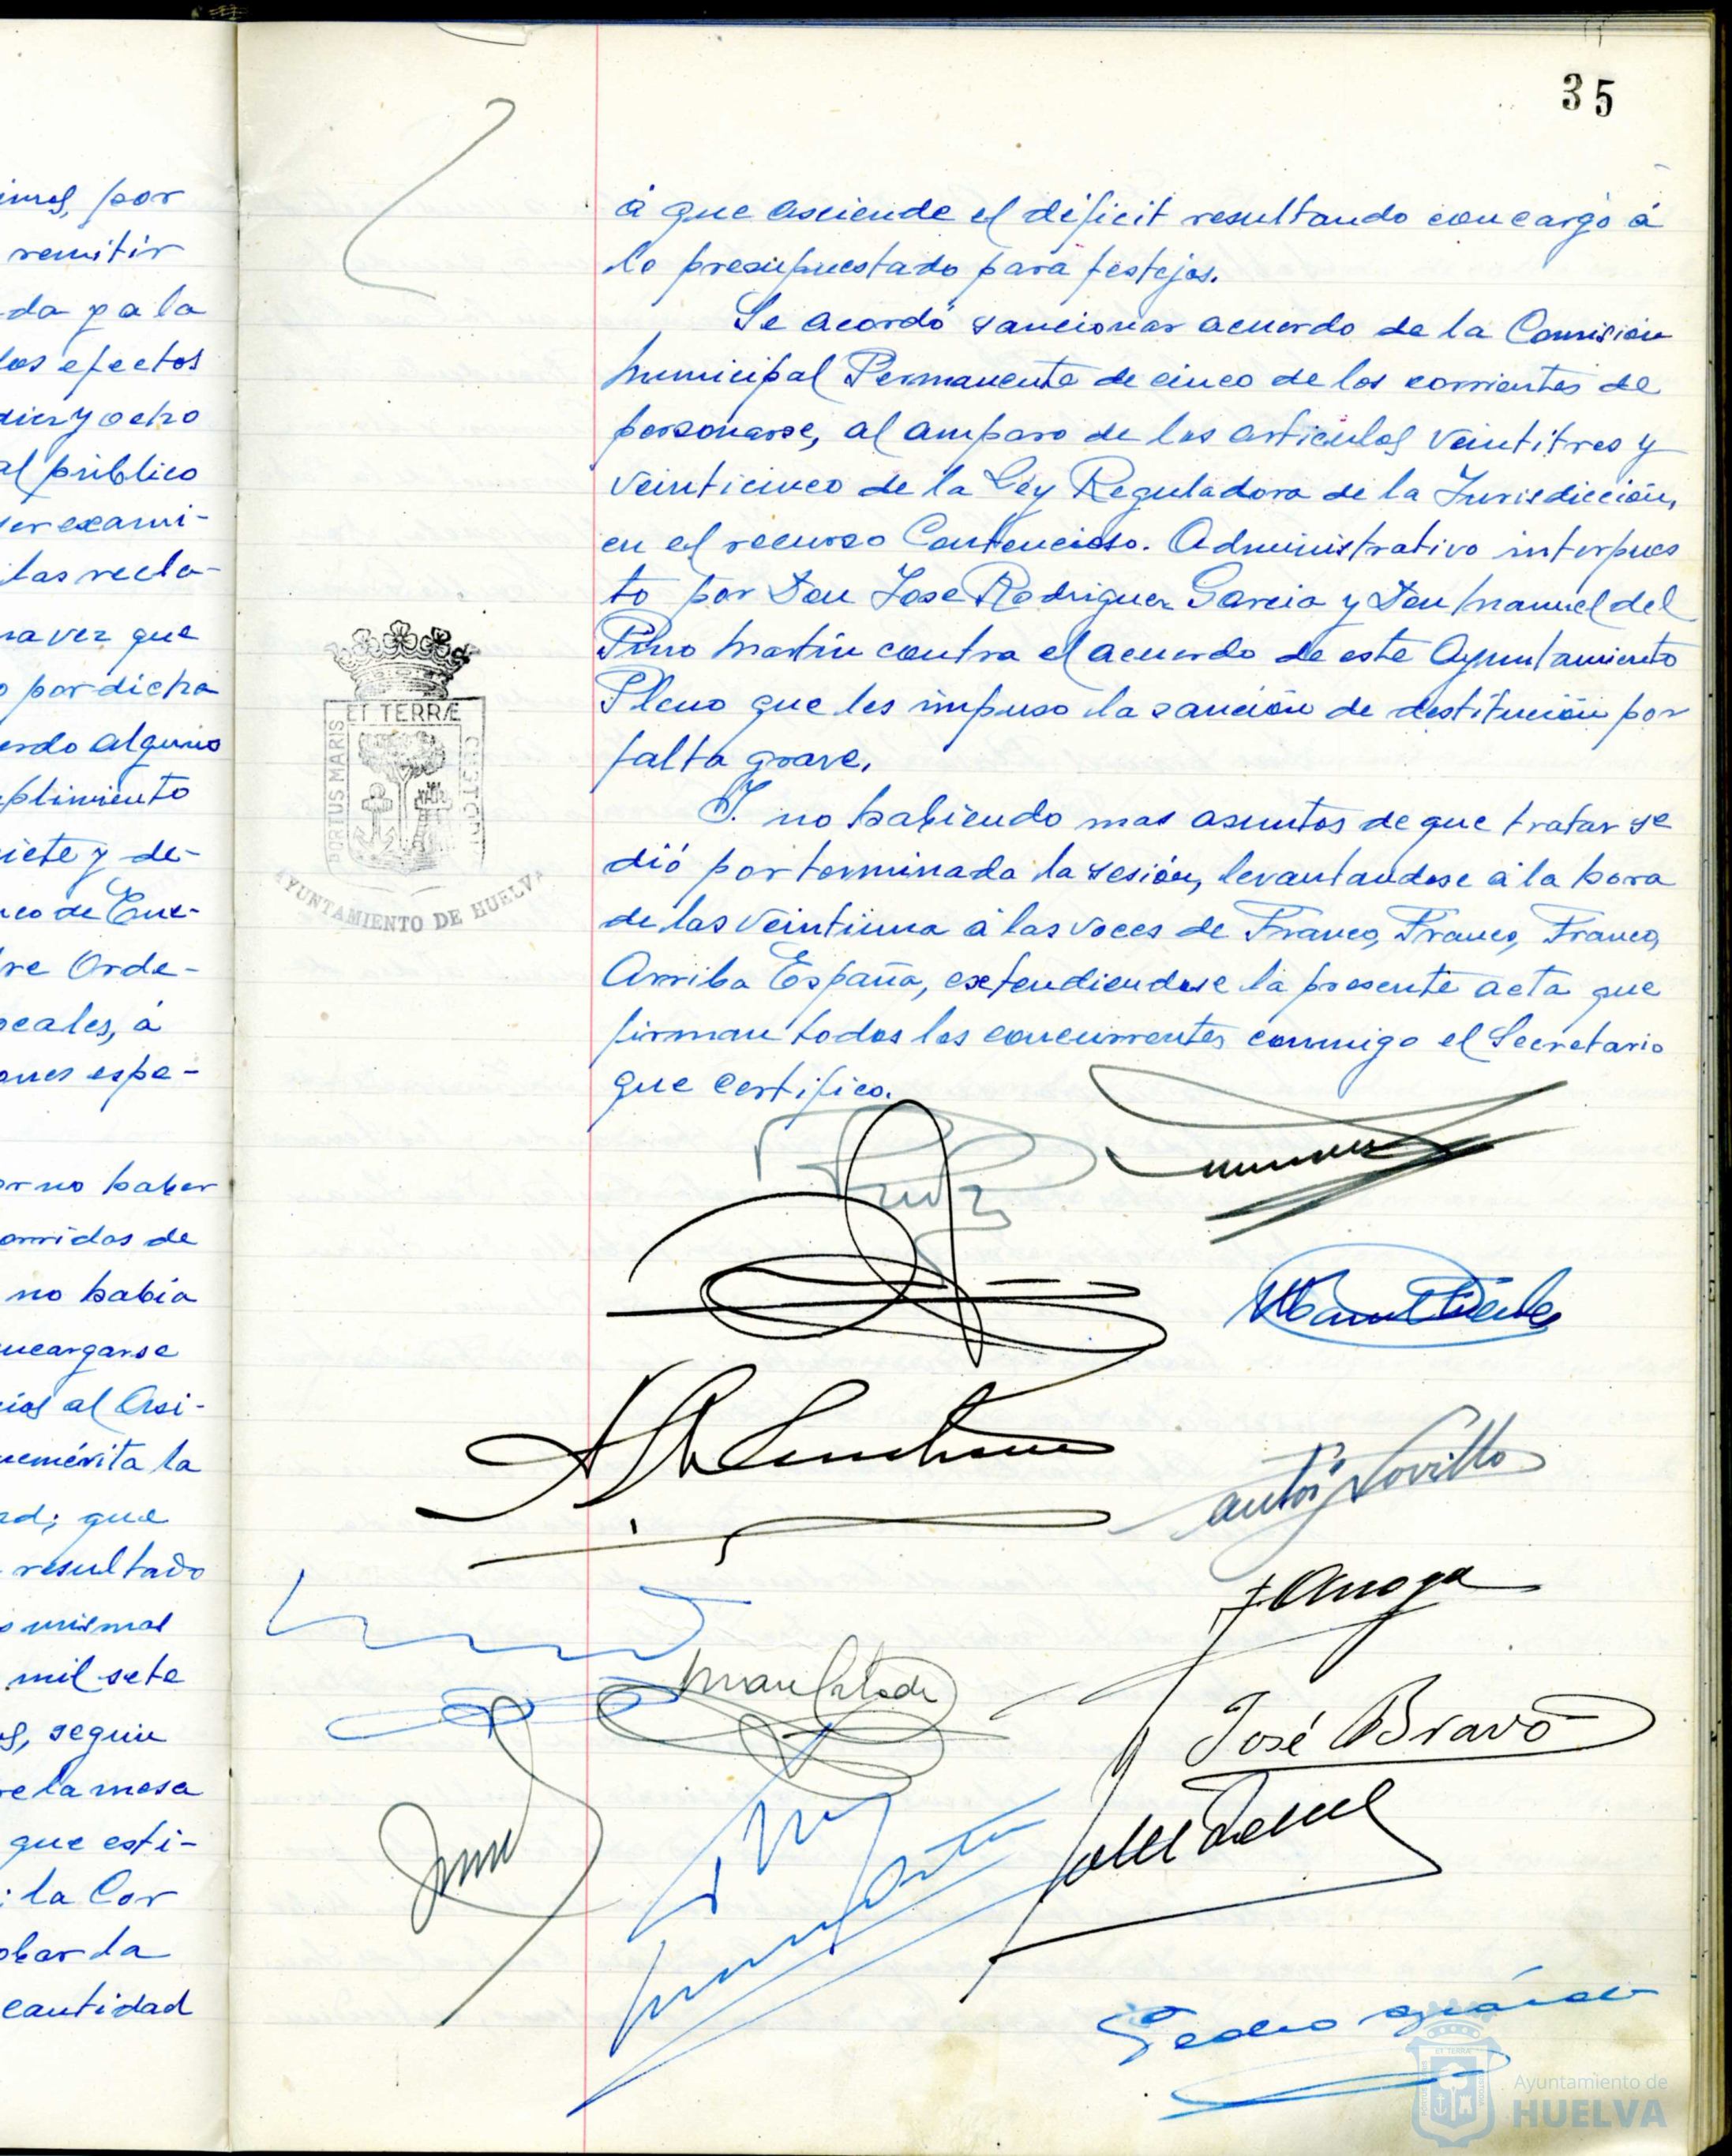 imas, por
remitir
da y a la
los efectos
diez y ocho
al público
ser exami-
las recla-
na vez que
o por dicha
erdo alguno
plimiento
siete y de-
nco de Ene-
re Orde-
ocales, á
ones espe-
or no haber
orridas de
no había
ncargarse
cias al Asi-
nemérita la
ad; que
resultado
s mismas
mil sete
s, según
re la mesa
que esti-
: la Cor
obar la
cantidad
35
á que asciende el déficit resultando con cargo á
lo presupuestado para festejos.
Se acordó sancionar acuerdo de la Comisión
Municipal Permanente de cinco de los corrientes de
personarse, al amparo de los articulos veintitres y
veinticinco de la Ley Reguladora de la Jurisdicción,
en el recurso Contencioso. Administrativo interpues
to por Don Jose Rodriguez Garcia y Don Manuel del
Pino Martín contra el acuerdo de este Ayuntamiento
Pleno que les impuso la sanción de destitución por
falta grave.
Y. no habiendo mas asuntos de que tratar se
dió por terminada la sesión, levantandose á la hora
de las veintiuna á las voces de Franco, Franco, Franco,
Arriba España, extendiendose la presente acta que
firman todos los concurrentes conmigo el Secretario
que certifico.
PORTUS MARIS
ET TERRÆ
CUSTOD
AYUNTAMIENTO DE HUELVA
José Bravo
Ayuntamiento de
HUELVA